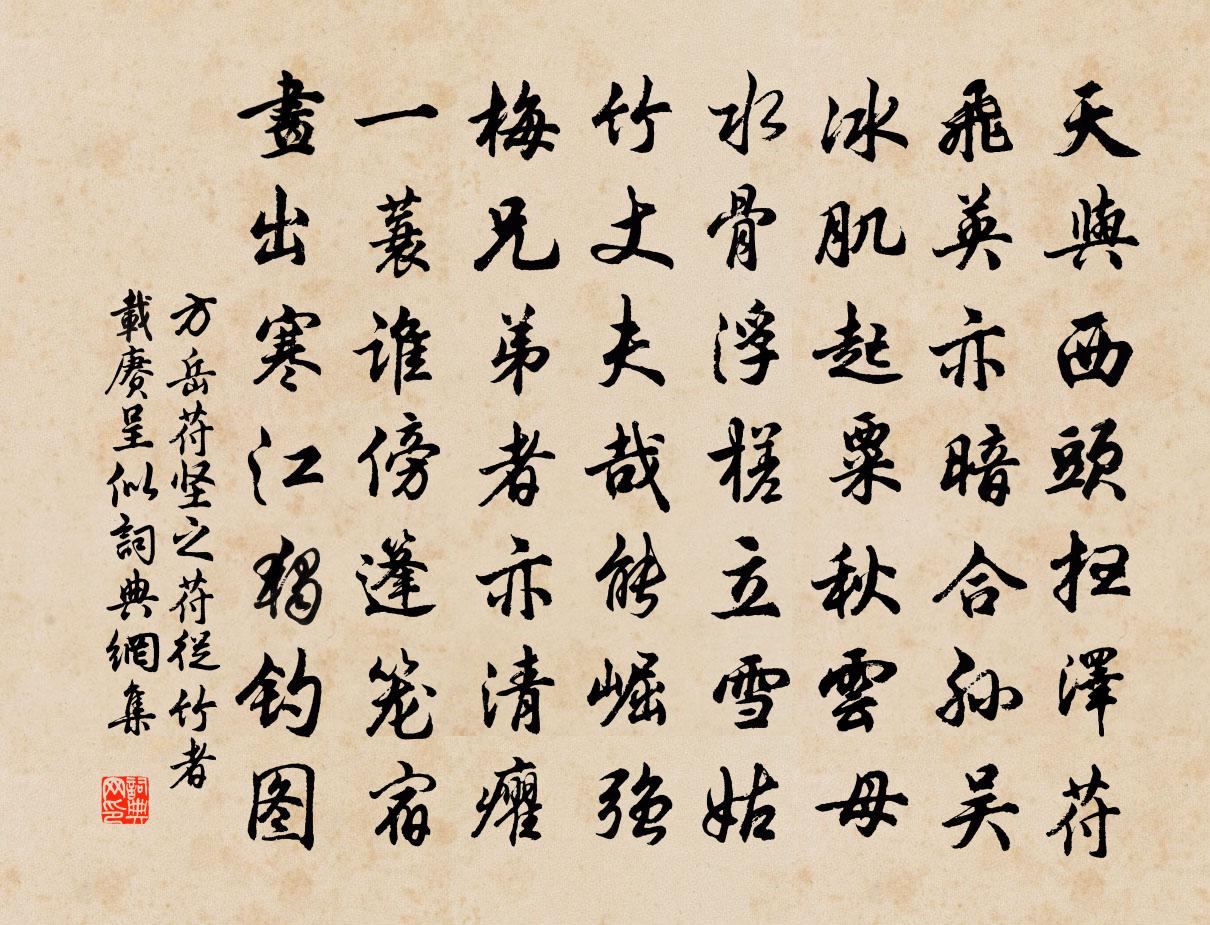 天與西頭抂澤苻
飛英亦暗合孙吴
冰肌起粟秋雲母
水骨浮槎立雪姑
竹丈夫哉能崛强
梅兄弟者亦清癯
一蓑谁傍篷笼宿
畫出寒江獨钓图
方岳苻坚之苻從竹者
載赓呈似詞典網集
詞典
网印